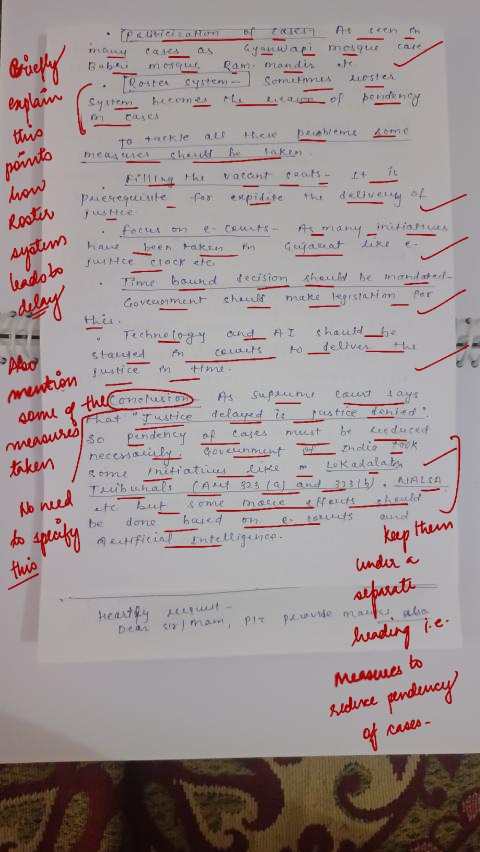 • Politicization of cases- As seen in
many cases as Gyanwapi mosque case
Babri mosque Ram mandir etc
• Roster system- Sometimes roster
system becomes the reason of pendency
in cases
To tackle all these problems some
measures should be taken.
• Filling the vacant seats- It is
prerequisite for expidite the delivery of
justice
• Focus on e-courts- As many initiatives
have been taken in Gujarat like e-
justice clock etc.
• Time bound decision should be mandated-
Government should make legislation for
this.
• Technology and AI should be
started in courts to deliver the
justice in time.
Conclusion- As Supreme Court says
that "Justice delayed is justice denied".
So pendency of cases must be reduced
necessarily. Government of India took
some initiatives like Lokadalats
Tribunals (Art 323(a) and 323(b), NALSA
etc but some more efforts should
be done based on e-courts and
Artificial Intelligence.
Dear Sir/Mam, Plz provide marks also
Briefly
explain
this
points
how
Roster
system
leads to
delay
Also
mention
some of the
measures
taken
No need
to specify
this
Keep them
under a
separate
heading i.e.
Measures to
reduce pendency
of cases-